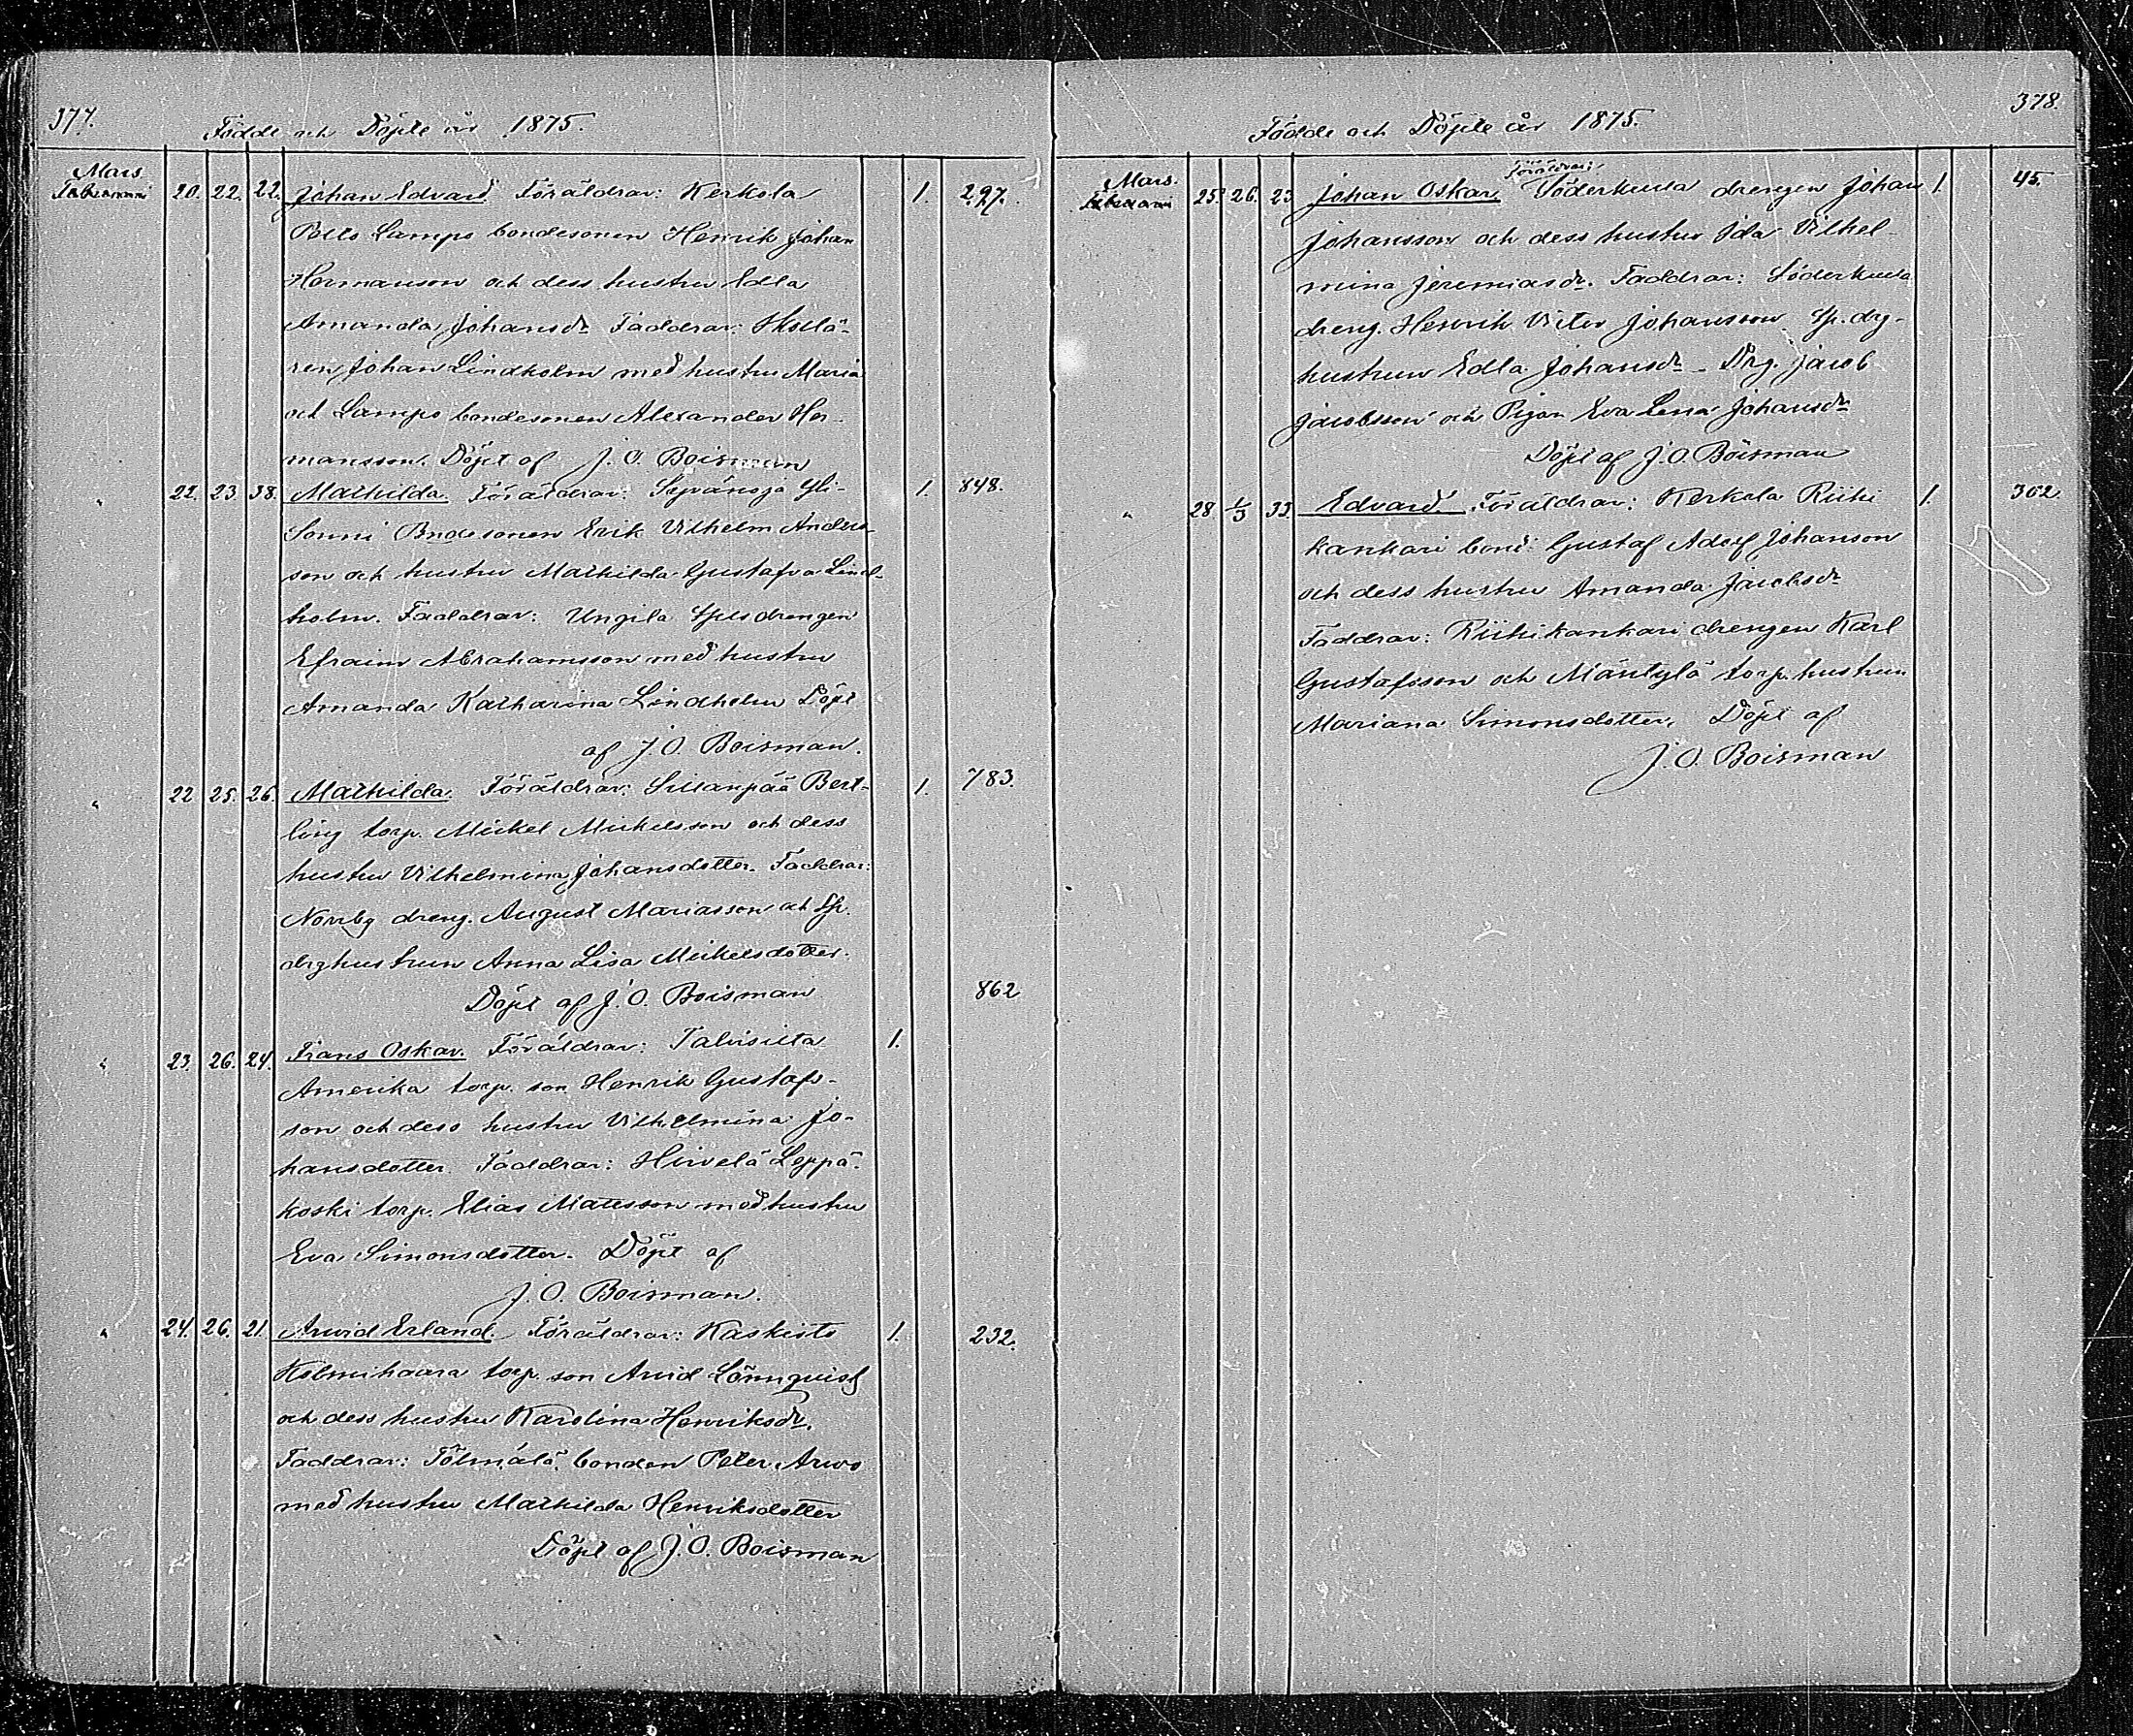 377.
Födde och Döpte år 1875.
Mars
Februari 20. 22. 22. Johan Edvard Föräldrar: Kerkola 1. 297.
Lampo bondesonen Henrik Johan
Hermansson och dess hustru Edla
Amanda Johansdr Faddrar:
Johan Lindholm med hustru Maria
och Lampo bondesonen Alexander Her-
mansson. Döpt af J. O. Boisman
" 22. 23. 38. Mathilda. Föräldrar: Syvänoja Yli- 1. 848.
Sonni Bndesonen Erik Vilhelm Anders-
son och hustru Mathilda Gustafva Lind-
holm. Faddrar: Ungila Spusdrengen
Efraim Abrahamsson med hustru
Amanda Katharina Lindholm Döpt
af J. O. Boisman.
" 22 25. 26. Mathilda. Föräldrar: Sillanpää Bert- 1. 783.
ling torp. Mickel Mickelsson och dess
hustru Vilhelmina Johansdotter. Faddrar:
Norrby dreng. August Mariasson och Sp.
drghustrun Anna Lisa Mickelsdotter.
Döpt af J. O. Boisman 862
" 23. 26. 24. Frans Oskar. Föräldrar: Talvisilta 1.
Amerika torp. son Henrik Gustafs-
son och dess hustru Vilhelmina Jo-
hansdotter. Faddrar: Hirvelä Leppä-
koski torp. Elias Mattsson med hustru
Eva Simonsdotter. Döpt af
J. O. Boisman.
" 24. 26. 21 Arvid Erland. Föräldrar: Kaskisto 1. 232.
Kolmihaara torp. son Arvid Lönnqvist
och dess hustru Karolina Henriksdr.
Faddrar: Tölmälä bonden Peter Arvo
med hustru Mathilda Henriksdotter
Döpt af J. O. Boisman
378.
Födde och Döpte år 1875.
Mars. Föräldrar:
Februari 25. 26. 23 Johan Oskar. Söderkulla drengen Johan 1. 45.
Johansson och dess hustru Ida Vilhel-
mina Jeremiasdr. Faddrar: Söderkulla
dreng. Henrik Victor Johansson Sp. drg-
hustrun Edla Johansdr - Drg. Jacob
Jacobsson och Pigan Eva Lena Johansdr
Döpt af J. O. Boisman
" 28 1/3 33. Edvard. Föräldrar: Kerkola Riihi 1. 302
kankari bond: Gustaf Adolf Johanson
och dess hustru Amanda
Faddrar: Riihikankari drengen Karl
Gustafsson och Mäntylä torp. hustrun
Mariana Simonsdotter. Döpt af
J. O. Boisman